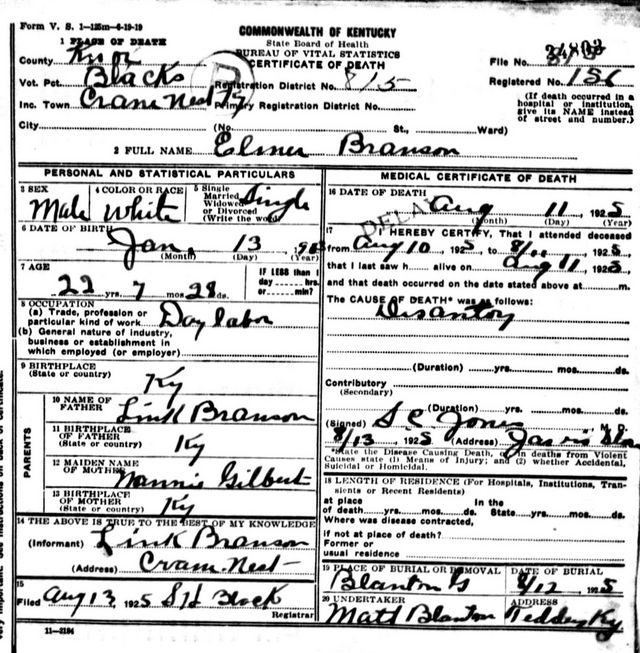 Form V. S. 1—125m—4-19-19
COMMONWEALTH OF KENTUCKY
State Board of Health
BUREAU OF VITAL STATISTICS
CERTIFICATE OF DEATH
1 PLACE OF DEATH
County Knox
File No.
Vot. Pct. Blacks
Registration District No. 815
Registered No. 156
Inc. Town Crane Nest Ky
Primary Registration District No.
(If death occurred in a
hospital or institution,
give its NAME instead
of street and number.)
City (No. St., Ward)
2 FULL NAME Elmer Branson
PERSONAL AND STATISTICAL PARTICULARS
3 SEX Male
4 COLOR OR RACE White
5 Single
Married
Widowed
or Divorced
(Write the word) Single
6 DATE OF BIRTH Jan. 13
(Month) (Day) (Year)
7 AGE
22 yrs. 7 mos. 28 ds.
IF LESS than 1
day hrs.
or min?
8 OCCUPATION
(a) Trade, profession or
particular kind of work Day labor
(b) General nature of industry,
business or establishment in
which employed (or employer)
9 BIRTHPLACE
(State or country) Ky
PARENTS
10 NAME OF
FATHER Link Branson
11 BIRTHPLACE
OF FATHER
(State or country) Ky
12 MAIDEN NAME
OF MOTHER Nannie Gilbert
13 BIRTHPLACE
OF MOTHER
(State or country) Ky
14 THE ABOVE IS TRUE TO THE BEST OF MY KNOWLEDGE
(Informant) Link Branson
(Address) Crane Nest
15
Filed Aug 13, 1925 S H Black
Registrar
11—2184
MEDICAL CERTIFICATE OF DEATH
16 DATE OF DEATH Aug 11, 1925
(Month) (Day) (Year)
17 I HEREBY CERTIFY, That I attended deceased
from Aug 10, 1925, to 8/11, 1925,
that I last saw h alive on Aug 11, 1925,
and that death occurred on the date stated above at m.
The CAUSE OF DEATH* was as follows:
Disantory
(Duration) yrs. mos. ds.
Contributory
(Secondary)
(Duration) yrs. mos. ds.
(Signed) S C Jones M. D.
8/13, 1925 (Address) Jarvis
*State the Disease Causing Death, or in deaths from Violent
Causes state (1) Means of Injury; and (2) whether Accidental,
Suicidal or Homicidal.
18 LENGTH OF RESIDENCE (For Hospitals, Institutions, Tran-
sients or Recent Residents)
at place In the
of death yrs. mos. ds. State yrs. mos. ds.
Where was disease contracted,
if not at place of death?
Former or
usual residence
19 PLACE OF BURIAL OR REMOVAL
Blanton
DATE OF BURIAL
8/12, 1925
20 UNDERTAKER
Matt Blanton
ADDRESS
Teddy Ky